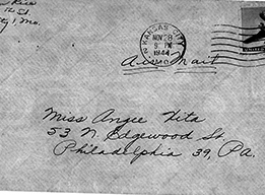 Rice
12 St
Mo.
KANSAS CITY
NOV 28
9 PM
1944
Air Mail
Miss Angee Vita
53 N. Edgewood St
Philadelphia 39, PA.